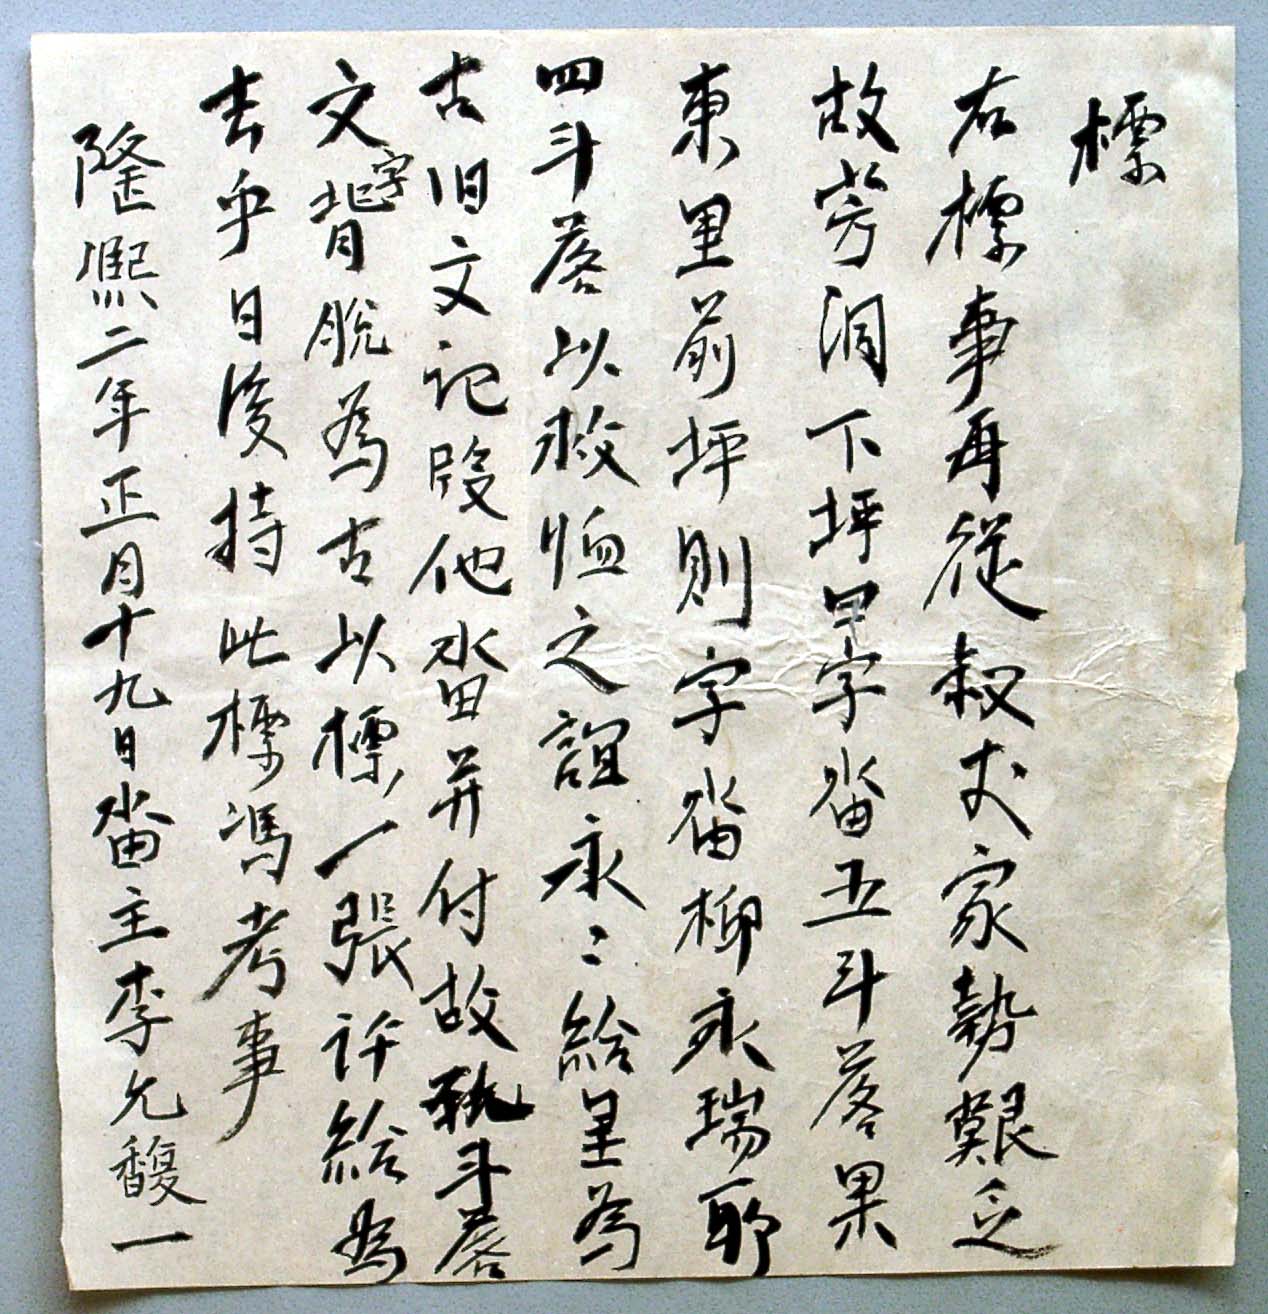 標
右標事再從叔丈家勢艱乏
故芳洞下坪甲字畓五斗落果
東里前坪則字畓柳永瑞耶
四斗落以救恤之誼永〻給是爲
古旧文記段他畓并付故執斗落
文字背脫爲古以標一張許給爲
去乎日後持此標馮考事
隆熙二年正月十九日畓主李允馥一